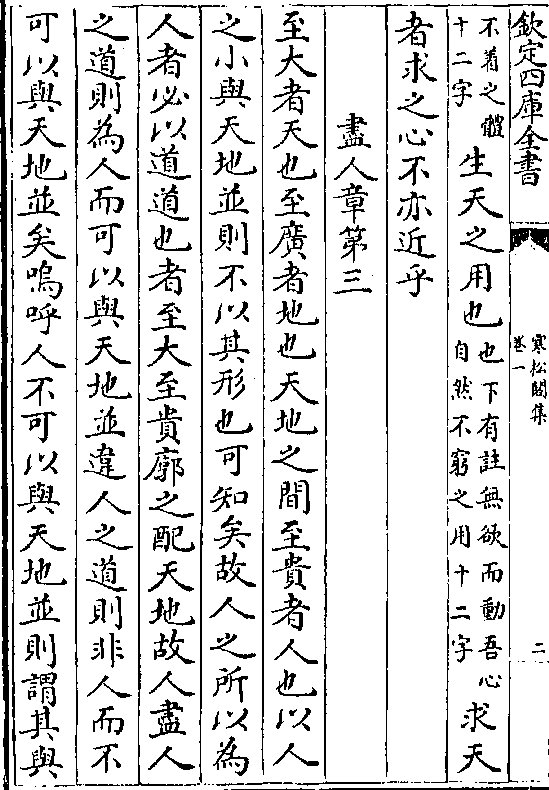 欽定四庫全書
寒松閣集
卷一
二
不着之體
十二字
生天之用也
也下有註無欲而動吾心
自然不窮之用十二字
求天
者求之心不亦近乎
盡人章第三
至大者天也至廣者地也天地之間至貴者人也以人
之小與天地並則不以其形也可知矣故人之所以為
人者必以道道也者至大至貴廓之配天地故人盡人
之道則為人而可以與天地並違人之道則非人而不
可以與天地並矣嗚呼人不可以與天地並則謂其與